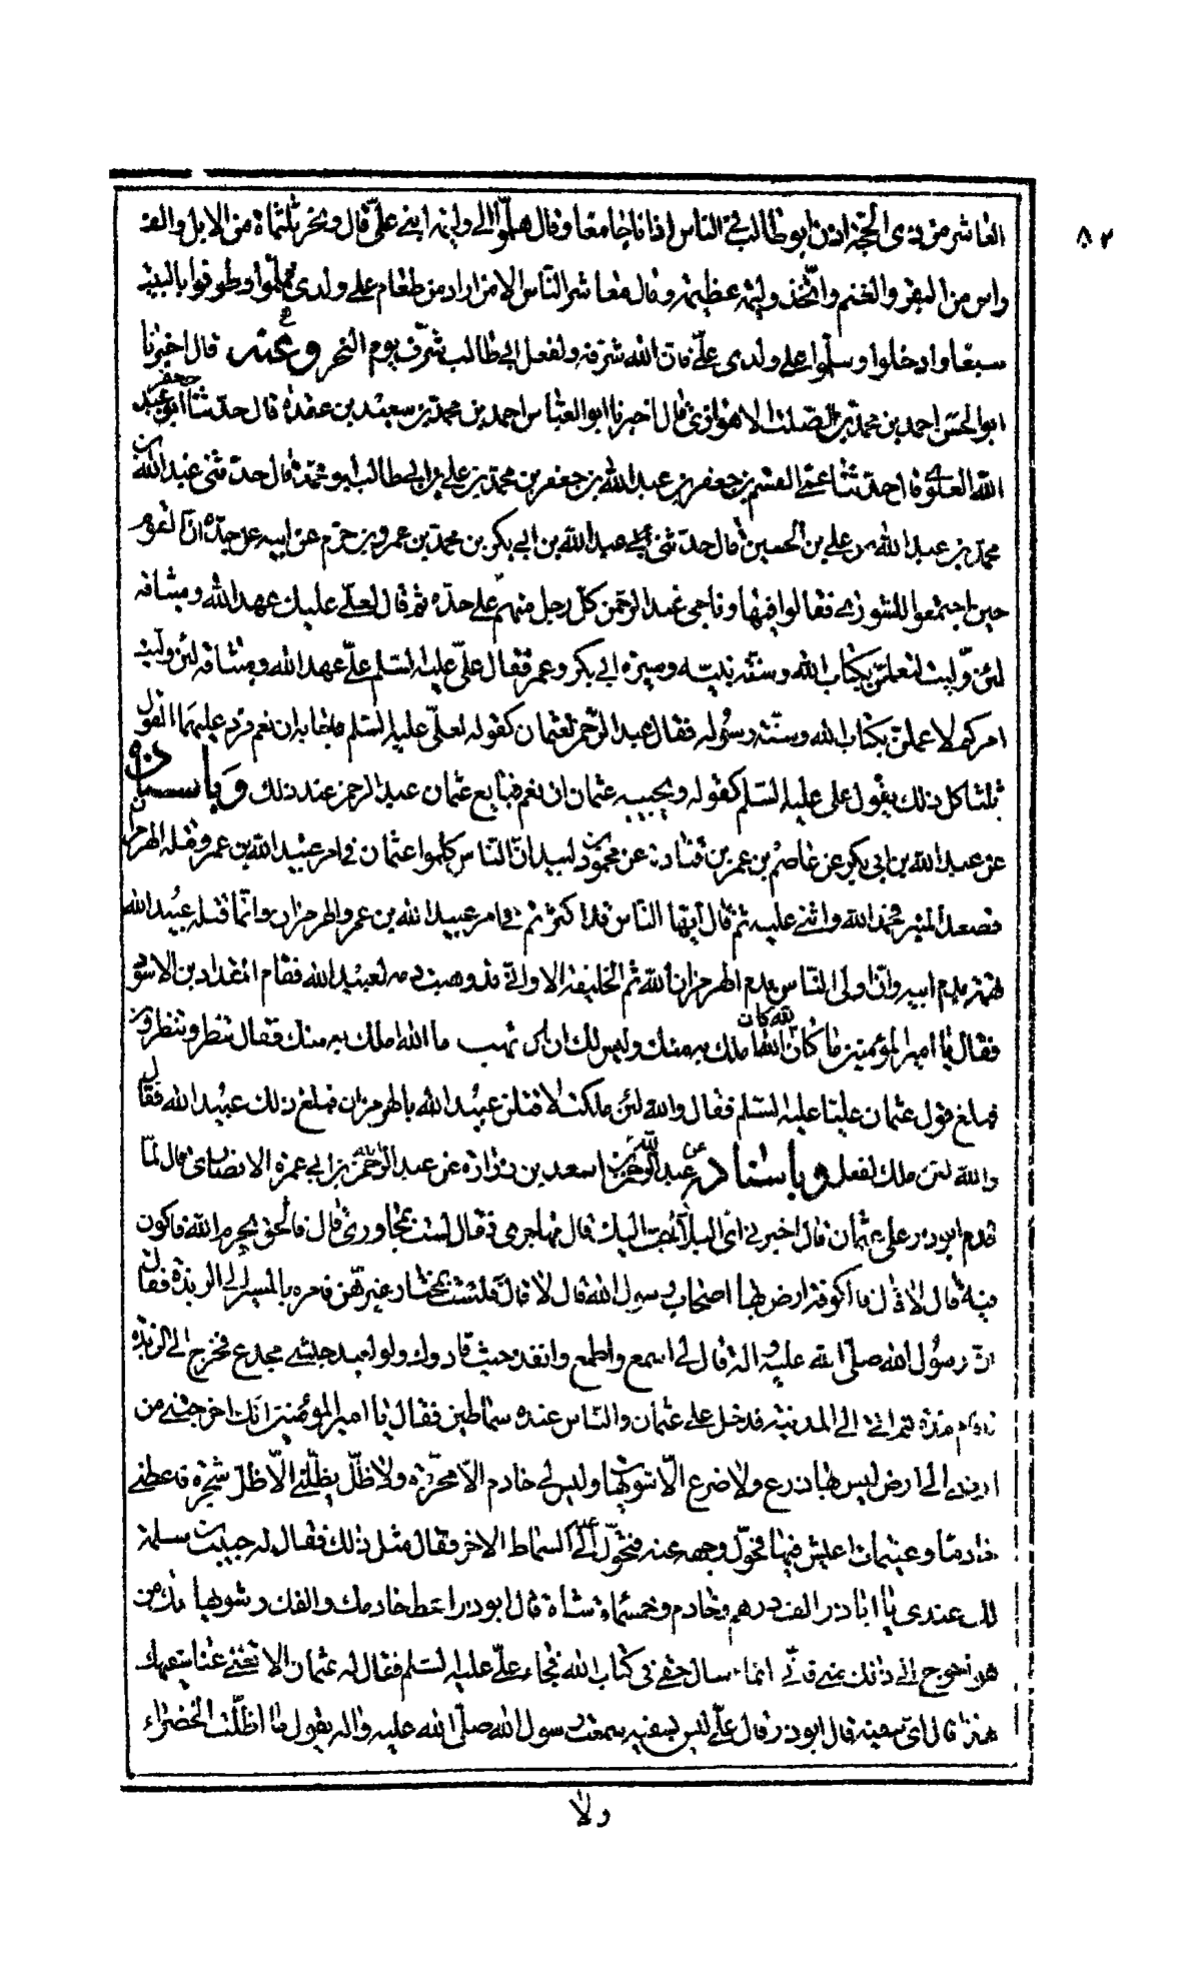 ٨٢
العاشر من ذي الحجة اذن ابو طالب في الناس اذانا جامعا وقال هلموا الى وليمة ابني علي قال ونحر ثلثماة من الابل والف
راس من البقر والغنم واتخذ وليمة عظيمة وقال معاشر الناس الا من اراد من طعام علي ولدي فهلموا وطوفوا بالبيت
سبعا وادخلوا وسلموا على ولدي علي فان الله شرفه ولفعل ابي طالب شرف يوم النحر وعنه قال اخبرنا
ابو الحسن احمد بن محمد بن الصلت الاهوازي قال اخبرنا ابو العباس احمد بن محمد بن سعيد بن عقدة قال حدثنا ابو جعفر عبد
الله العلوي قال حدثنا عمي القسم بن جعفر بن عبد الله بن جعفر بن محمد بن علي بن ابي طالب ابو محمد قال حدثني عبد الله بن
محمد بن عبد الله بن علي بن الحسين قال حدثني ابي عبد الله بن ابي بكر بن محمد بن عمرو بن حزم عن ابيه عن جده ان القوم
حين اجتمعوا للشورى فقالوا فيها وناجى عبد الرحمن كل رجل منهم على حدة ثم قال لعلي عليك عهد الله وميثاقه
لئن وليت لتعملن بكتاب الله وسنة نبيه وسيرة ابي بكر وعمر فقال علي عليه السلم علي عهد الله وميثاقه لئن وليت
امركم لاعملن بكتاب الله وسنة رسوله فقال عبد الرحمن لعثمان كقوله لعلي عليه السلم فاجابه ان نعم فرد عليهما القول
ثلثا كل ذلك يقول علي عليه السلم كقوله ويجيبه عثمان ان نعم فبايع عثمان عبد الرحمن عند ذلك وباسناده
عن عبد الله بن ابي بكر عن عاصم بن عمر بن قتادة عن محمود بن لبيد ان الناس كلموا عثمان في امر عبيد الله بن عمر وقتله الهرمزان
فصعد المنبر فحمد الله واثنى عليه ثم قال ايها الناس قد اكثرتم في امر عبيد الله بن عمر والهرمزان وانما قتله عبيد الله
تهمة بدم ابيه وان اولى الناس بدم الهرمزان الله ثم الخليفة الا واني قد وهبت دمه لعبيد الله فقام المقداد بن الاسود
فقال يا امير المؤمنين ما كان لله كان الله املك به منك وليس لك ان تهب ما الله املك به منك فقال ننظر وتنظرون
فبلغ قول عثمان عليا عليه السلم فقال والله لئن ملكت لاقتلن عبيد الله بالهرمزان فبلغ ذلك عبيد الله فقال
والله لئن ملك لفعل وباسناده عن عبد الله بن اسعد بن زرارة عن عبد الرحمن بن ابي عمرة الانصاري قال لما
قدم ابو ذر على عثمان قال اخبرني اي البلاد احب اليك قال مهاجري فقال لست بمجاوري قال فالحق بحرم الله فاكون
فيه قال لا قال فالكوفة ارض بها اصحاب رسول الله قال لا قال فلست بمختار غيرهن فامره بالمسير الى الربذة فقال
ان رسول الله صلى الله عليه واله قال لي اسمع واطع وانفذ حيث قادوك ولو لعبد حبشي مجدع فخرج الى الربذة
فاقام مدة ثم اتى الى المدينة فدخل على عثمان والناس عنده سماطين فقال يا امير المؤمنين انك اخرجتني من
ارضي الى ارض ليس بها زرع ولا ضرع الا شويهات وليس لي خادم الا محررة ولا ظل يظلني الا ظل شجرة فاعطني
خادما وغنيمات اعيش فيها فحول وجهه عنه فتحول عنه الى السماط الاخر فقال مثل ذلك فقال له حبيب بن سلمة
لك عندي يا ابا ذر الف درهم وخادم وخمسماة شاة قال ابو ذر اعط خادمك والفك وشويهاتك من
هو احوج الى ذلك مني فاني انما اسال حقي في كتاب الله فجاء علي عليه السلم فقال له عثمان الا تغني عنا سفيهك
هذا قال اي سفيه قال ابو ذر قال علي ليس بسفيه سمعت رسول الله صلى الله عليه واله يقول ما اظلت الخضراء
ولا